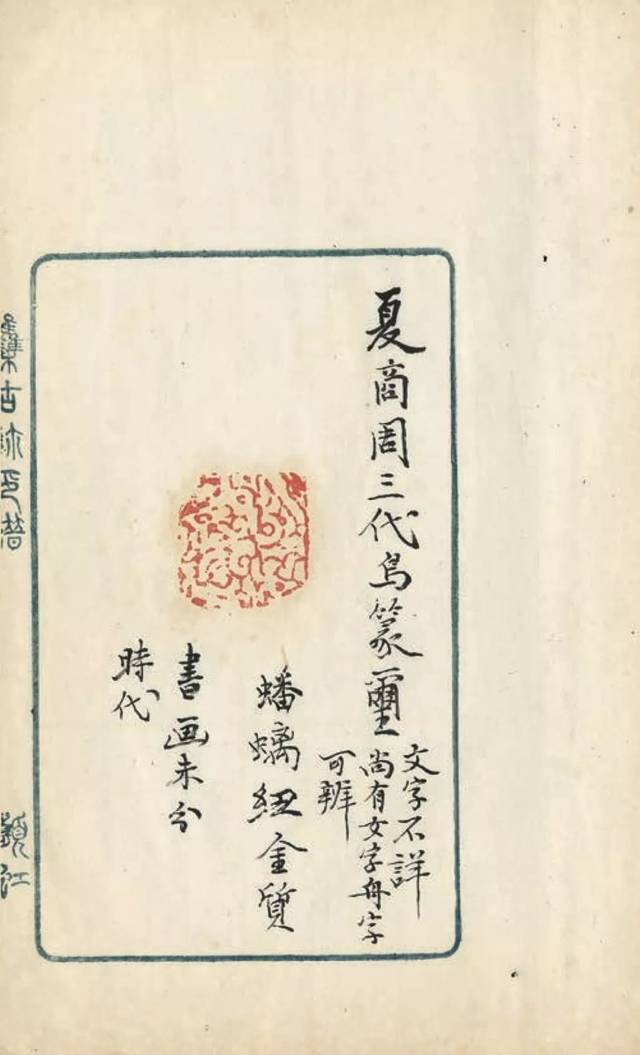 夏商周三代鳥篆璽
文字不詳
尚有女字舟字
可辨
蟠螭紐金質
書画未分
時代
集古印譜